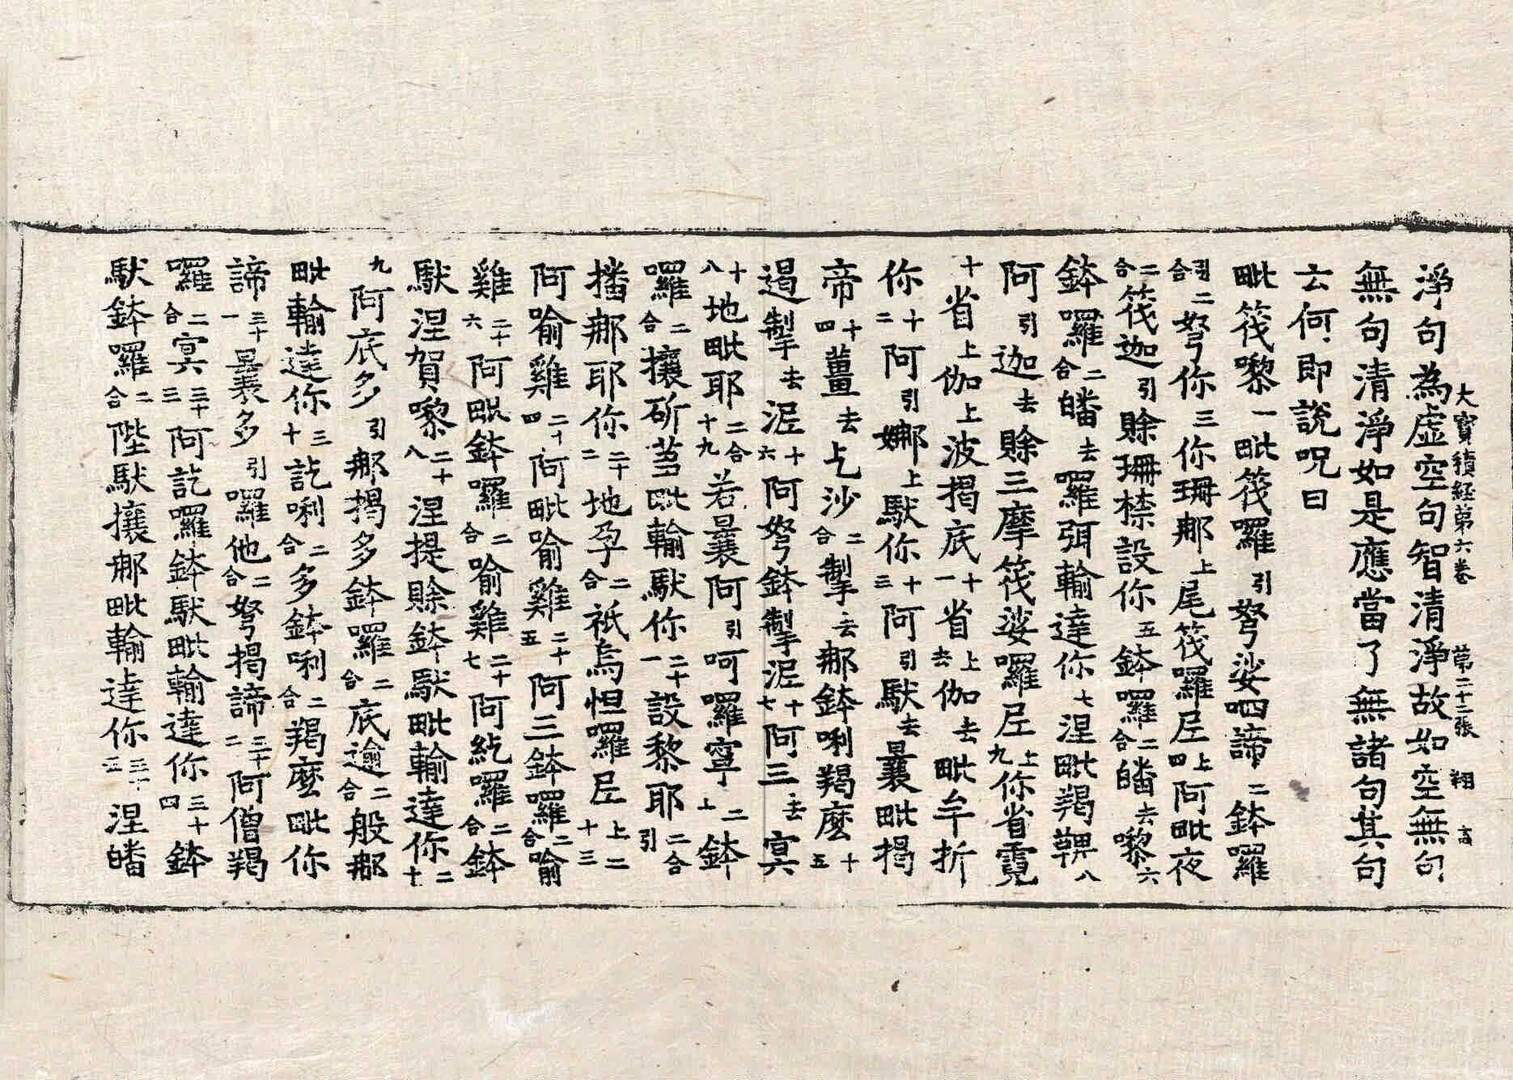 大寶積経第六卷 第二十二張 翔 高
淨句為虛空句智清淨故如空無句
無句清淨如是應當了無諸句其句
云何即說呪曰
毗筏嚟一毗筏囉引弩娑呬諦二鉢囉
引合二弩你三你珊那上尾筏囉尼上四阿毗夜
二合筏迦引賒珊㮈設你五鉢囉二合皤去嚟六
鉢囉二合皤去囉弭輸達你七涅毗羯鞞八
阿引迦去賒三摩筏娑囉尼上九你省霓
十省上伽上波揭底十一省上伽去毗牟折
你十二阿引娜上馱你十三阿引馱去曩毗揭
帝十四薑去乞沙二合掣去那鉢唎羯麼十五
遏掣去泥十六阿弩鉢掣泥十七阿三去冥
十八地毗耶二合十九若曩阿引呵囉寧上二鉢
囉二合攘斫芻毗輸馱你二十一設黎耶二合引
播那耶你二十二地孕二合祇烏怛囉尼上二十三
阿喻雞二十四阿毗喻雞二十五阿三鉢囉二合喻
雞二十六阿毗鉢囉二合喻雞二十七阿紇囉二合鉢
馱涅賀嚟二十八涅提賒鉢馱毗輸達你二十
九阿底多引那揭多鉢囉二合底逾二合般那
毗輸達你三十訖唎二合多鉢唎二合羯麼毗你
諦三十一曩多引囉他二合弩揭諦三十二阿僧羯
囉二合冥三十三阿訖囉鉢馱毗輸達你三十四鉢
馱鉢囉二合陛馱攘那毗輸達你三十五涅皤